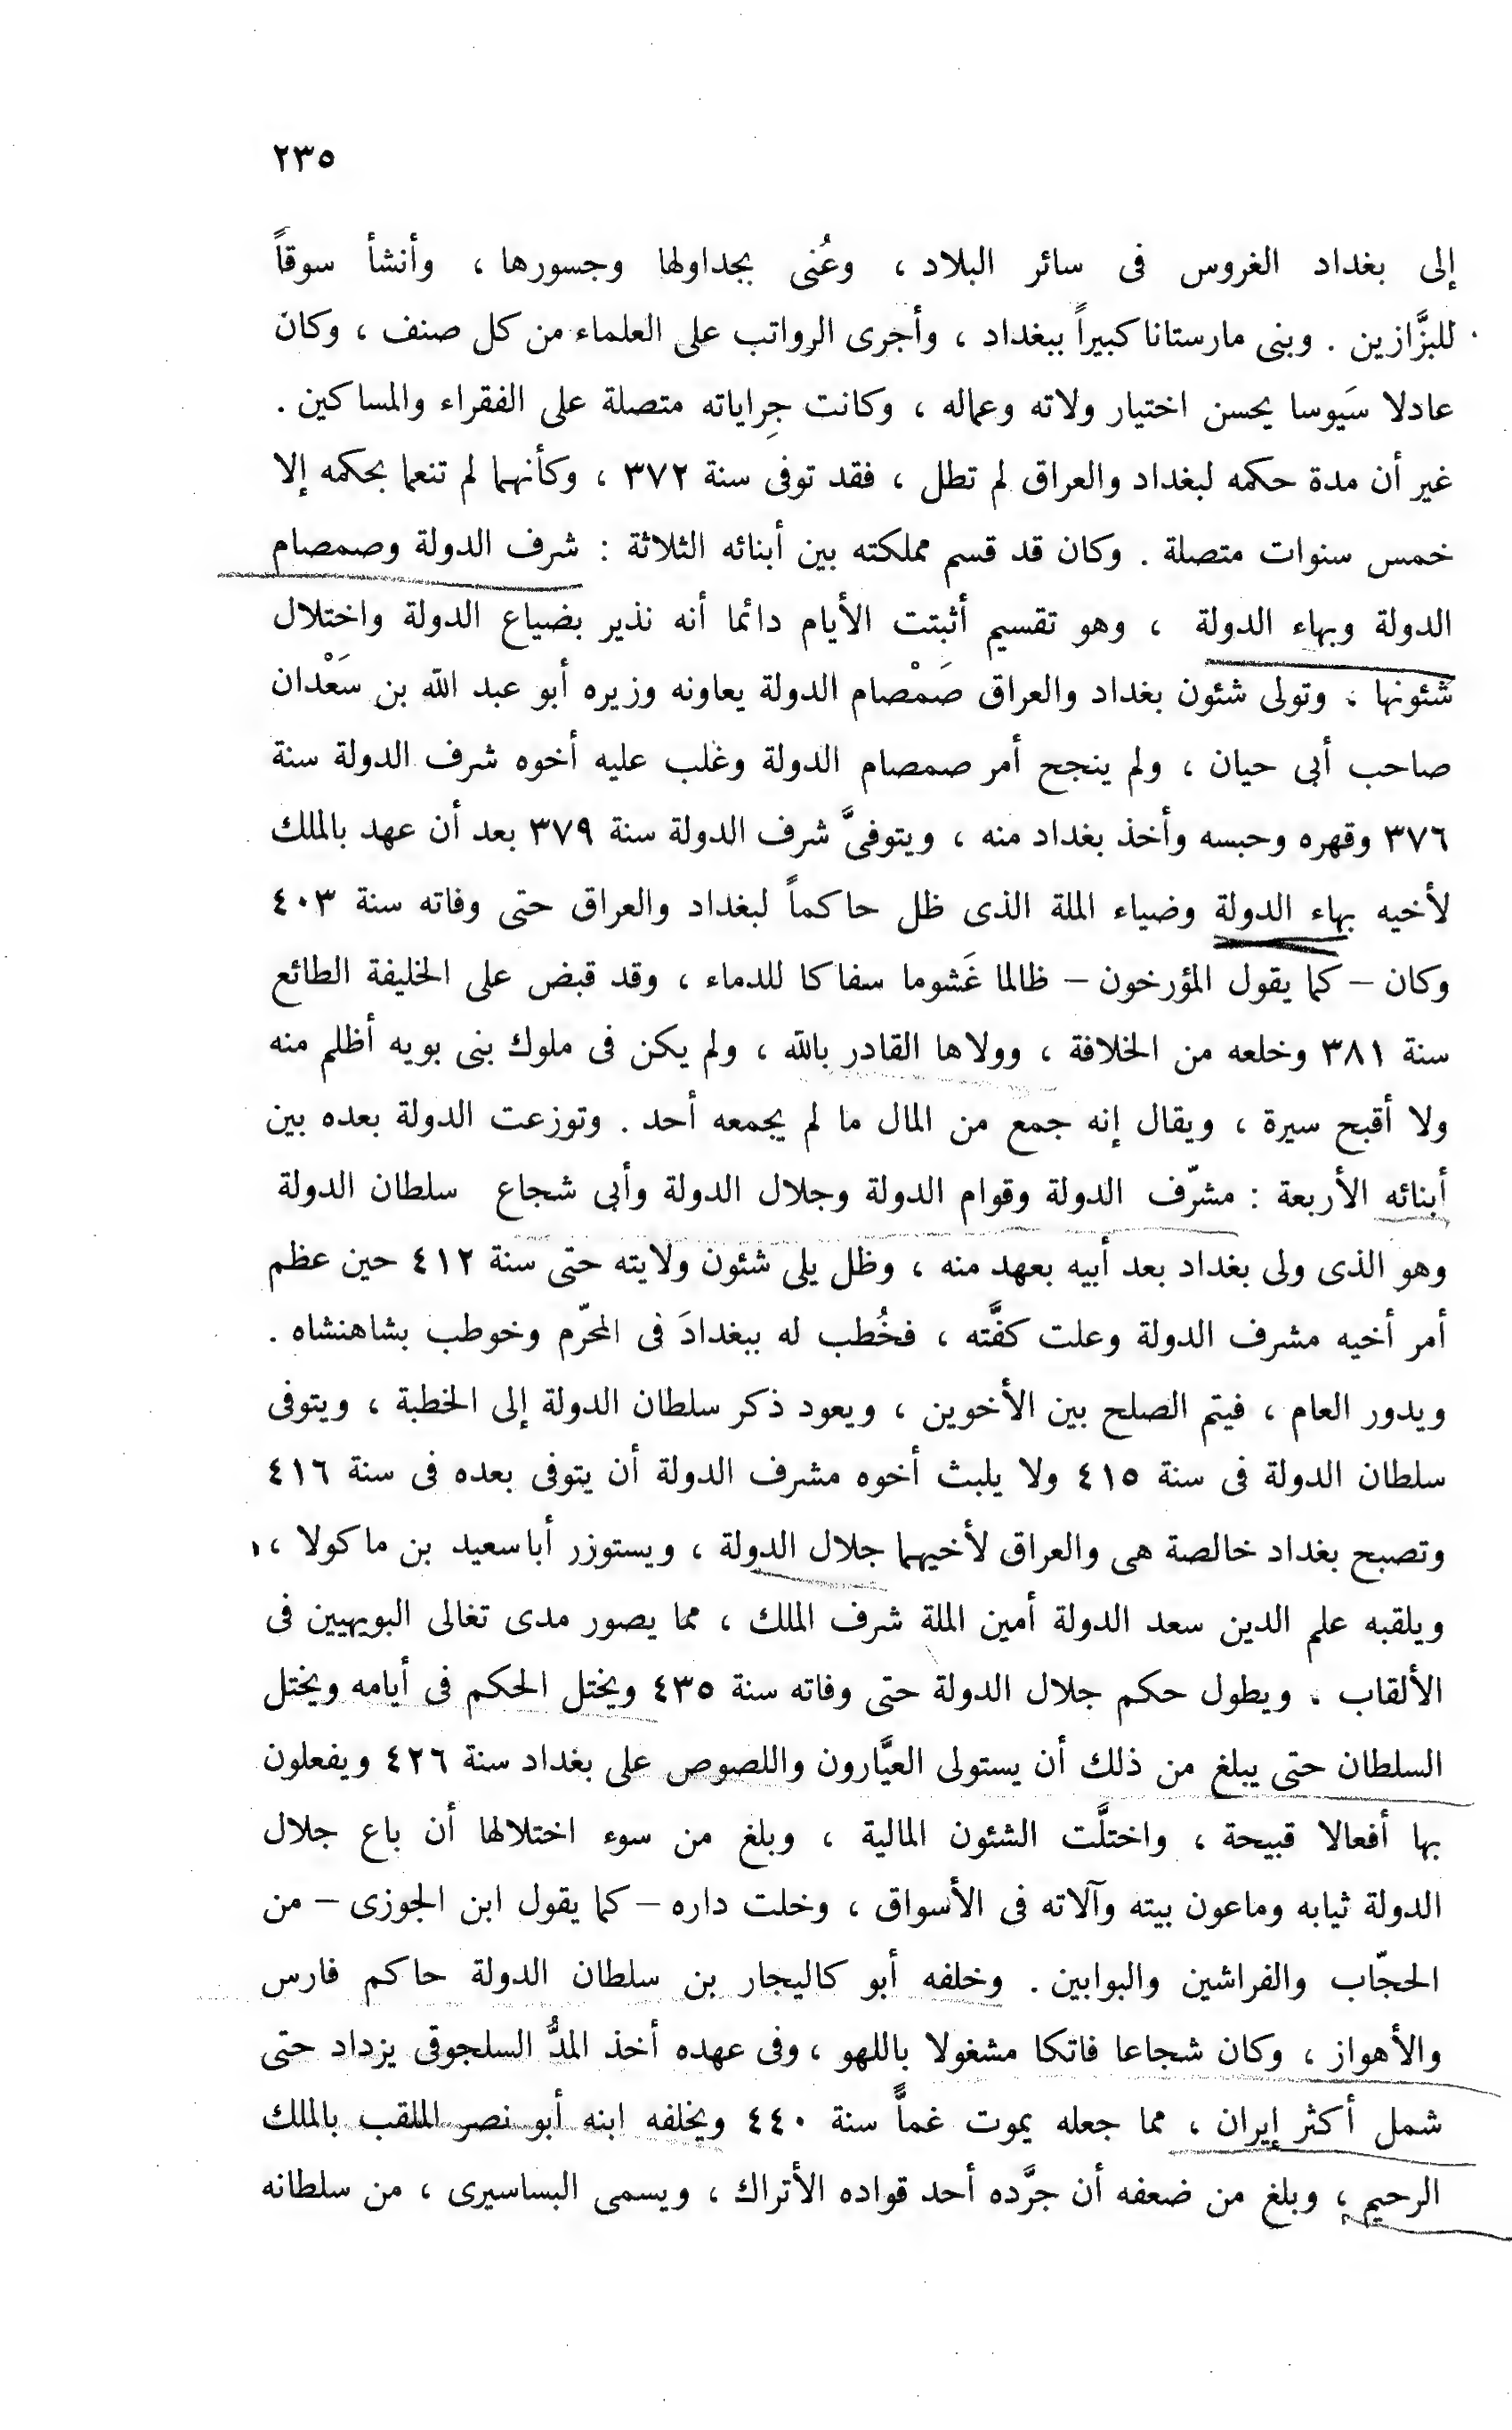 ٢٣٥
إلى بغداد الغروس فى سائر البلاد ، وعُنى بجداولها وجسورها ، وأنشأ سوقاً
للبزَّازين . وبنى مارستانا كبيراً ببغداد ، وأجرى الرواتب على العلماء من كل صنف ، وكان
عادلا سَيوسا يحسن اختيار ولاته وعماله ، وكانت جِراياته متصلة على الفقراء والمساكين .
غير أن مدة حكمه لبغداد والعراق لم تطل ، فقد توفى سنة ٣٧٢ ، وكأنهما لم تنعما بحكمه إلا
خمس سنوات متصلة . وكان قد قسم مملكته بين أبنائه الثلاثة : شرف الدولة وصمصام
الدولة وبهاء الدولة ، وهو تقسيم أثبتت الأيام دائما أنه نذير بضياع الدولة واختلال
شئونها . وتولى شئون بغداد والعراق صَمْصام الدولة يعاونه وزيره أبو عبد الله بن سَعْدان
صاحب أبى حيان ، ولم ينجح أمر صمصام الدولة وغلب عليه أخوه شرف الدولة سنة
٣٧٦ وقهره وحبسه وأخذ بغداد منه ، ويتوفىَّ شرف الدولة سنة ٣٧٩ بعد أن عهد بالملك
لأخيه بهاء الدولة وضياء الملة الذى ظل حاكماً لبغداد والعراق حتى وفاته سنة ٤٠٣
وكان – كما يقول المؤرخون – ظالما غَشوما سفاكا للدماء ، وقد قبض على الخليفة الطائع
سنة ٣٨١ وخلعه من الخلافة ، وولاها القادر بالله ، ولم يكن فى ملوك بنى بويه أظلم منه
ولا أقبح سيرة ، ويقال إنه جمع من المال ما لم يجمعه أحد . وتوزعت الدولة بعده بين
أبنائه الأربعة : مشرّف الدولة وقوام الدولة وجلال الدولة وأبى شجاع سلطان الدولة
وهو الذى ولى بغداد بعد أبيه بعهد منه ، وظل يلى شئون ولايته حتى سنة ٤١٢ حين عظم
أمر أخيه مشرف الدولة وعلت كفَّته ، فخُطب له ببغدادَ فى المحرّم وخوطب بشاهنشاه .
ويدور العام ، فيتم الصلح بين الأخوين ، ويعود ذكر سلطان الدولة إلى الخطبة ، ويتوفى
سلطان الدولة فى سنة ٤١٥ ولا يلبث أخوه مشرف الدولة أن يتوفى بعده فى سنة ٤١٦
وتصبح بغداد خالصة هى والعراق لأخيهما جلال الدولة ، ويستوزر أبا سعيد بن ماكولا ،
ويلقبه علم الدين سعد الدولة أمين الملة شرف الملك ، مما يصور مدى تغالى البويهيين فى
الألقاب . ويطول حكم جلال الدولة حتى وفاته سنة ٤٣٥ ويختل الحكم فى أيامه ويختل
السلطان حتى يبلغ من ذلك أن يستولى العيَّارون واللصوص على بغداد سنة ٤٢٦ ويفعلون
بها أفعالا قبيحة ، واختلَّت الشئون المالية ، وبلغ من سوء اختلالها أن باع جلال
الدولة ثيابه وماعون بيته وآلاته فى الأسواق ، وخلت داره – كما يقول ابن الجوزى – من
الحجّاب والفراشين والبوابين . وخلفه أبو كاليجار بن سلطان الدولة حاكم فارس
والأهواز ، وكان شجاعا فاتكا مشغولا باللهو ، وفى عهده أخذ المدُّ السلجوقى يزداد حتى
شمل أكثر إيران ، مما جعله يموت غماًّ سنة ٤٤٠ ويخلفه ابنه أبو نصر الملقب بالملك
الرحيم ، وبلغ من ضعفه أن جرَّده أحد قواده الأتراك ، ويسمى البساسيرى ، من سلطانه